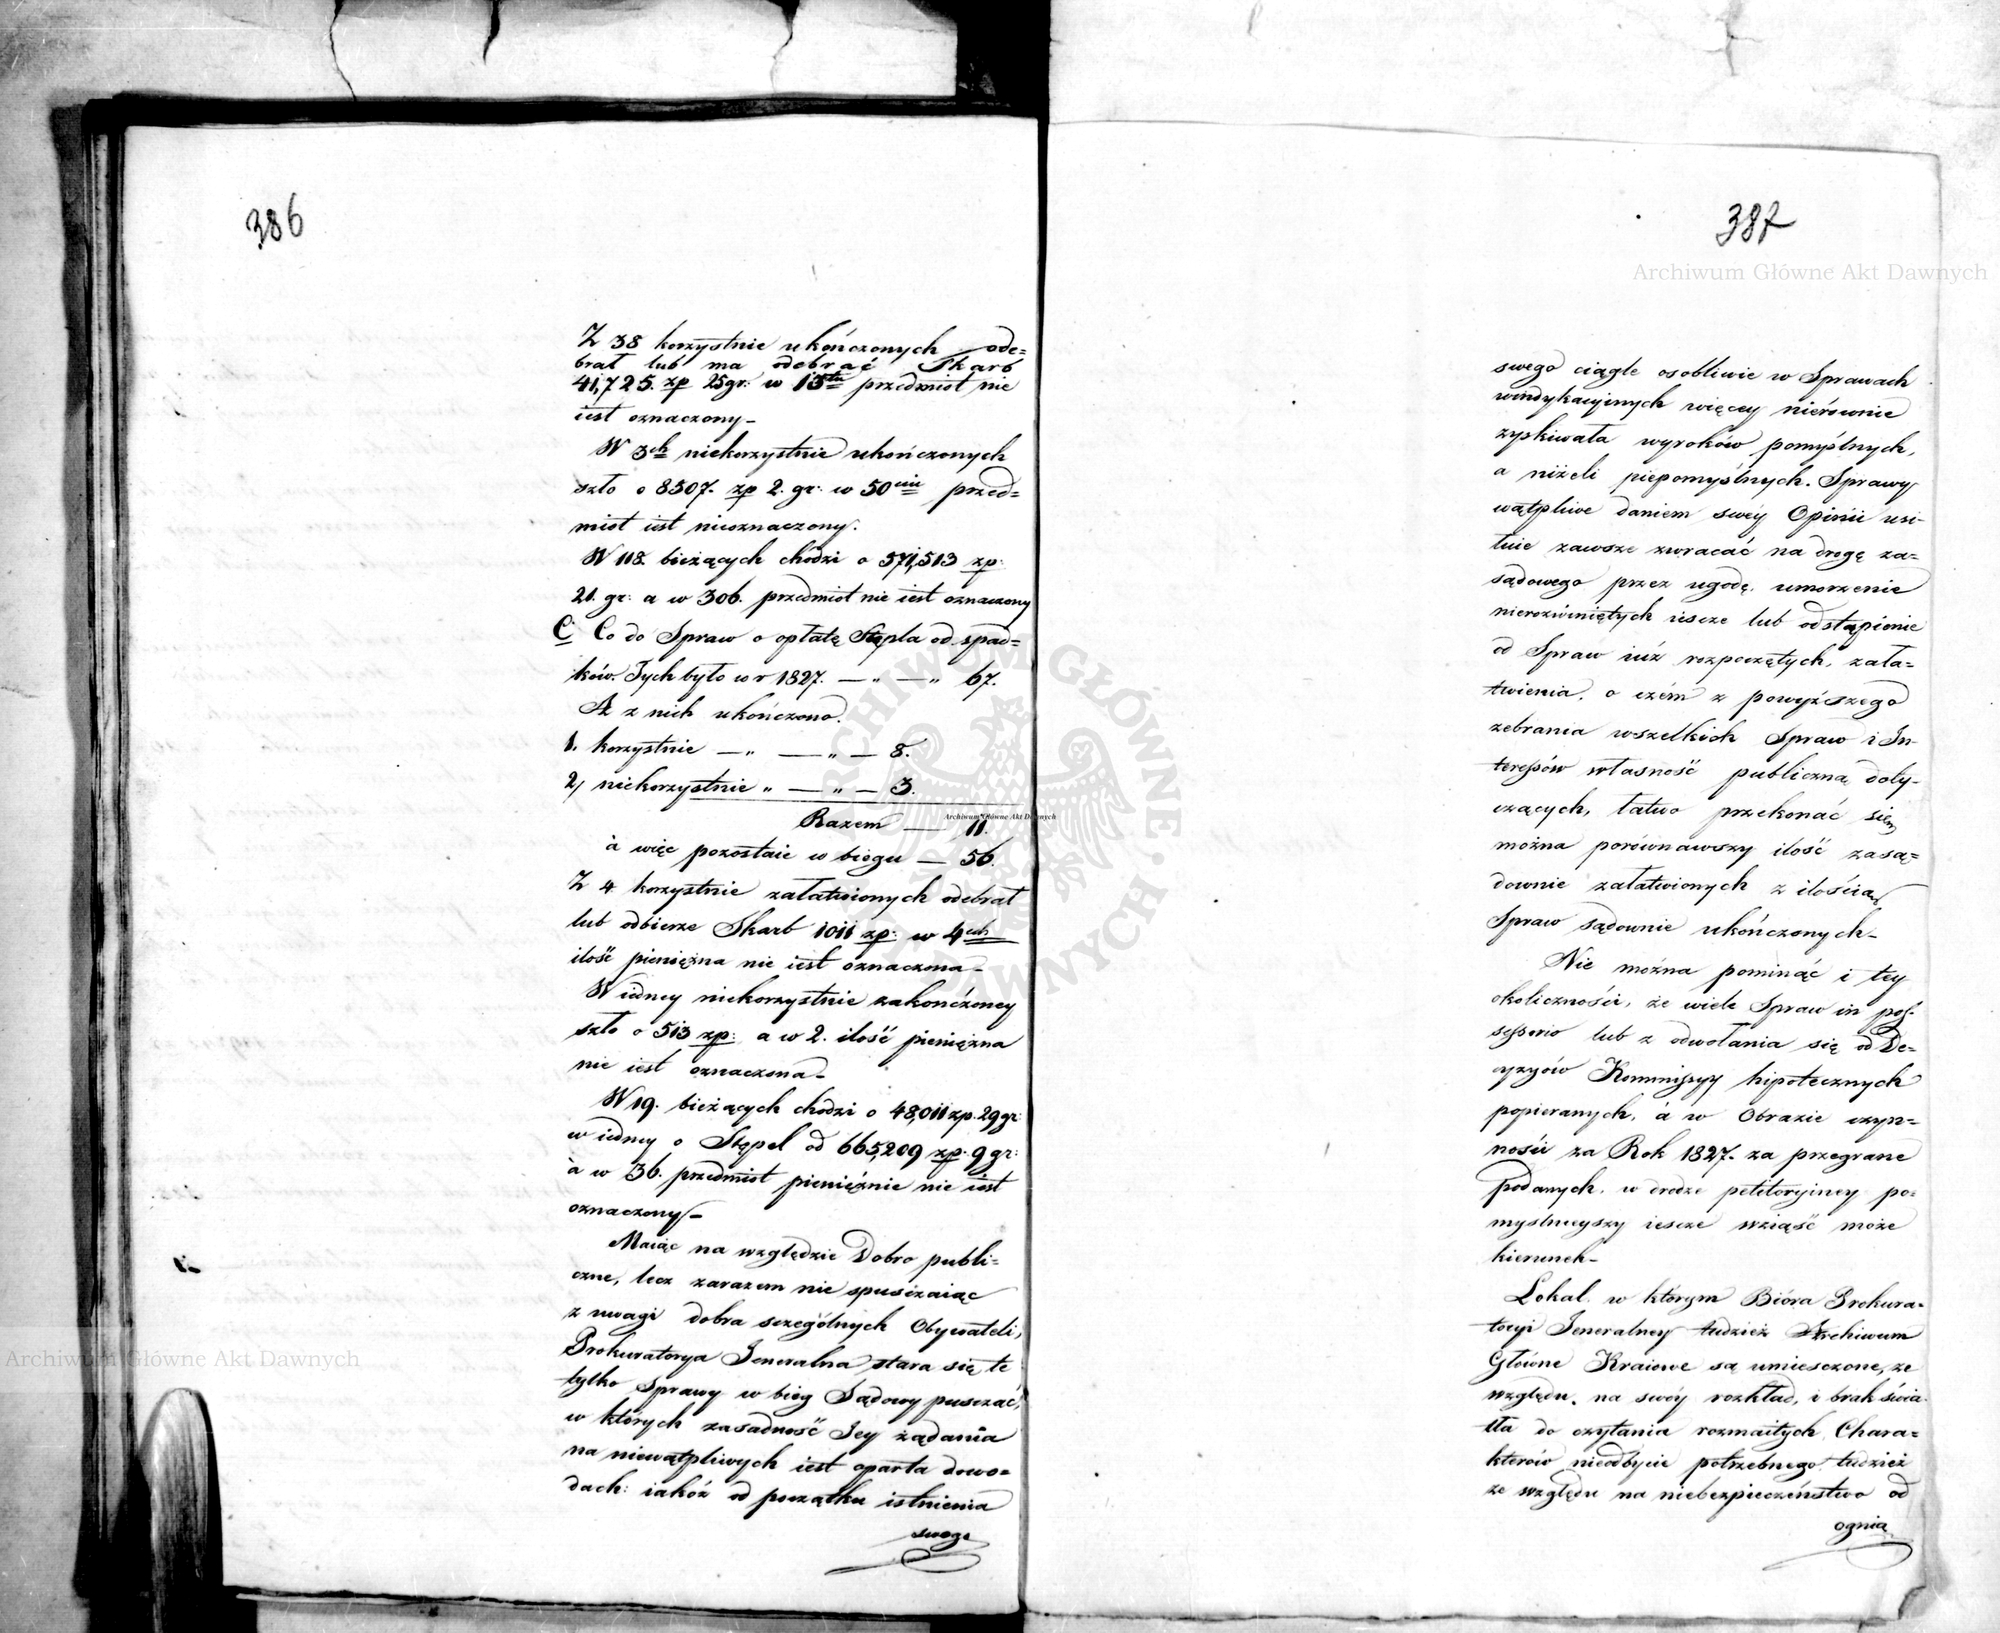 386
Z 38 korzystnie ukończonych ode=
brał lub ma odebrać Skarb
41,725. zp 25 gr: w 15tu przedmiot nie
iest oznaczony_
W 3ch niekorzystnie ukończonych
szło o 8507. zp 2. gr: w 50ciu przed=
miot iest nieoznaczony.
W 118. bieżących chodzi o 571,513 zp:
21. gr: a w 306. przedmiot nie iest oznaczony
C Co do Spraw o opłatę Stępla od spad=
ków. Tych było w r 1827. — „ — „ 67.
Az z nich ukończono.
1. korzystnie — „ — „ — 8.
2, niekorzystnie „ — „ — 3.
Razem — 11.
a więc pozostaie w biegu — 56.
Z 4 korzystnie załatwionych odebrał
lub odbierze Skarb 1011 zp: w 4ech
ilość pieniężna nie iest oznaczona_
W iedney niekorzystnie zakończoney
szło o 513 zp: a w 2. ilość pieniężna
nie iest oznaczona_
W 19. bieżących chodzi o 48,011 zp. 29 gr:
w iedney o Stępel od 665,209 zp. 9 gr:
a w 36. przedmiot pieniężnie nie iest
oznaczony_
Maiąc na względzie Dobro publi=
czne, lecz zarazem nie spuszczaiąc
z uwagi dobra szczególnych Obywateli,
Prokuratorya Jeneralna stara się te
tylko Sprawy w bieg Sądowy puszczać,
w których zasadność Jey żądania
na niewątpliwych iest oparta dowo=
dach: iakóż od początku istnienia
swego
387
swego ciągle osobliwie w Sprawach
windykacyinych więcey nierównie
zyskiwała wyroków pomyślnych,
a niżeli niepomyślnych. Sprawy
wątpliwe daniem swéy Opinii usi-
łuie zawsze zwracać na drogę za=
sądowego przez ugodę, umorzenie
nierozwiniętych iescze lub odstąpienie
od Spraw iuż rozpoczętych, zała=
twienia, o czém z powyższego
zebrania wszelkich Spraw i In-
teressów własność publiczną doty-
czących, łatwo przekonać się
można porównawszy ilość zasą=
downie załatwionych z ilością
Spraw sądownie ukończonych_
Nie można pominąć i tey
okoliczności, że wiele Spraw in pos-
sessorio lub z odwołania się od De=
cyzyów Kommissyy hipotecznych
popieranych, á w Obrazie czyn=
ności za Rok 1827. za przegrane
podanych, w drodze petitoryiney po=
myślnieyszy iescze wziąść może
kierunek_
Lokal w którym Bióra Prokura=
toryi Jeneralney tudzież Archiwum
Główne Kraiowe są umiesczone, ze
względu na swóy rozkład, i brak świa-
tła do czytania rozmaitych Chara=
kterów nieodbycie potrzebnego tudzież
ze względu na niebezpieczeństwo od
ognia
Archiwum Główne Akt Dawnych
Archiwum Główne Akt Dawnych
Archiwum Główne Akt Dawnych
ARCHIWUM GŁÓWNE AKT DAWNYCH